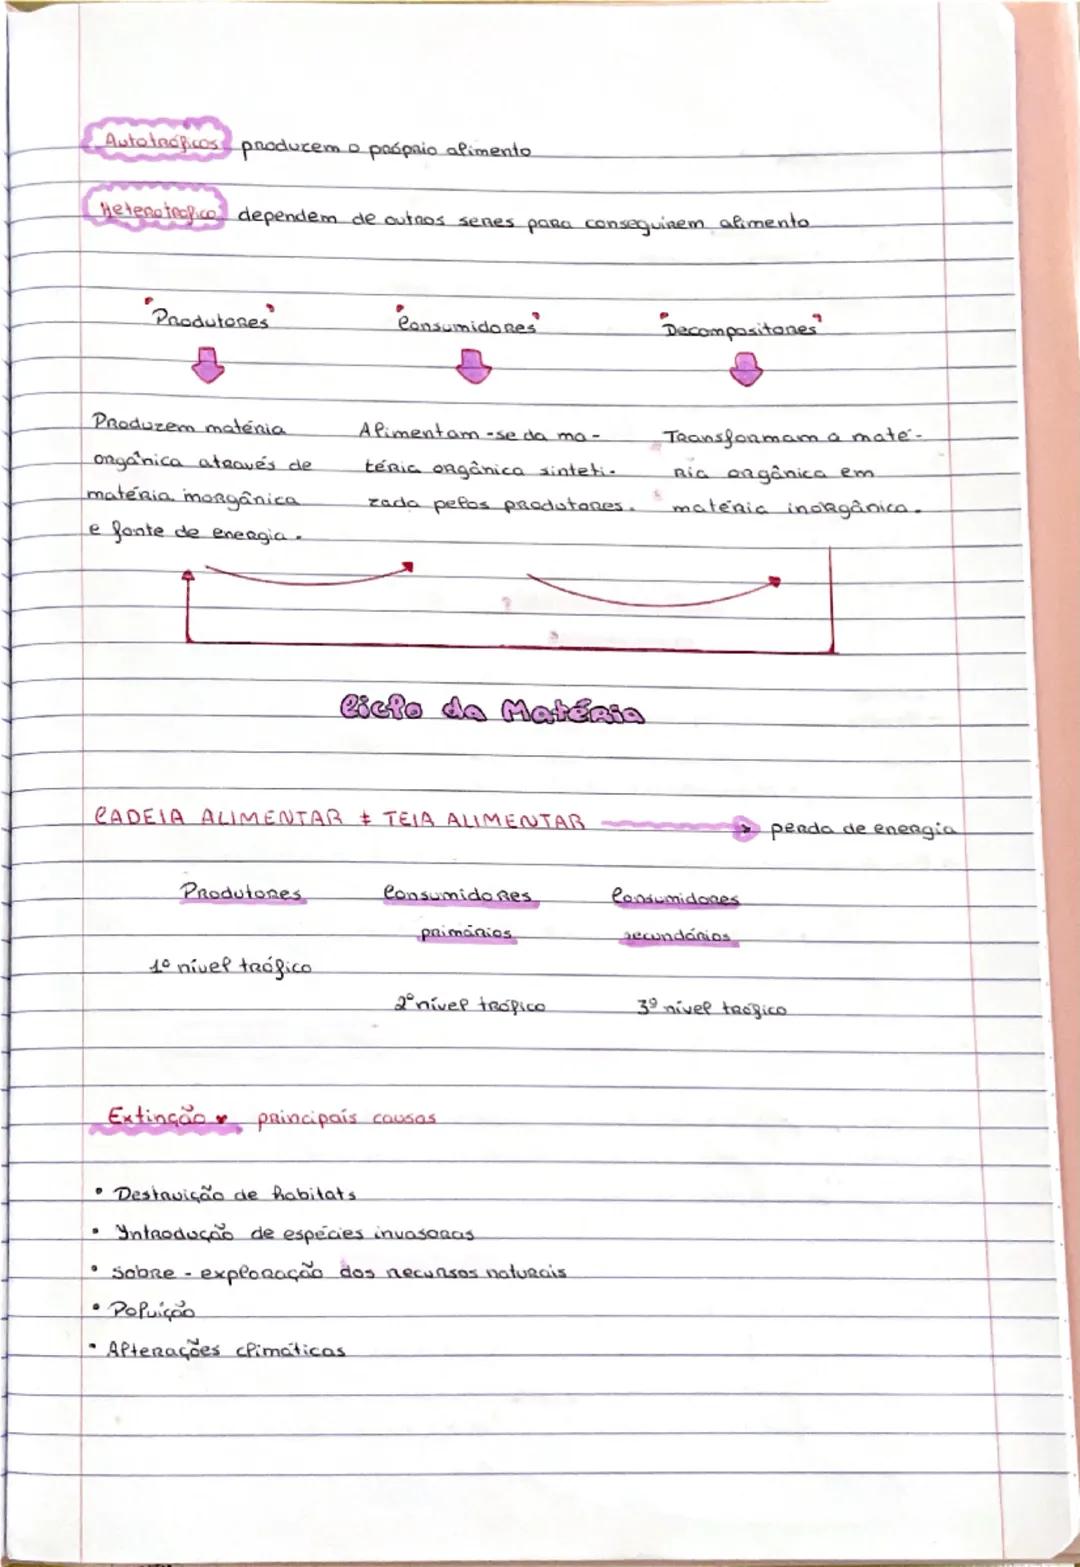 Autotróficos producem o próprio alimento
Heterotrófico dependem de outros seres para conseguirem alimento
"Produtores" "Consumidores" "Decompositores"
Produzem matéria Alimentam-se da ma- Transformam a maté-
orgânica através de téria orgânica sinteti- ria orgânica em
matéria inorgânica zada pelos produtores. matéria inorgânica.
e fonte de energia.
Ciclo da Matéria
CADEIA ALIMENTAR ≠ TEIA ALIMENTAR perda de energia
Produtores Consumidores Consumidores
primários secundários
1º nível trófico
2º nível trófico 3º nível trófico
Extinção principais causas
• Destruição de habitats
• Introdução de espécies invasoras
• Sobre - exploração dos recursos naturais
• Poluição
• Alterações climáticas